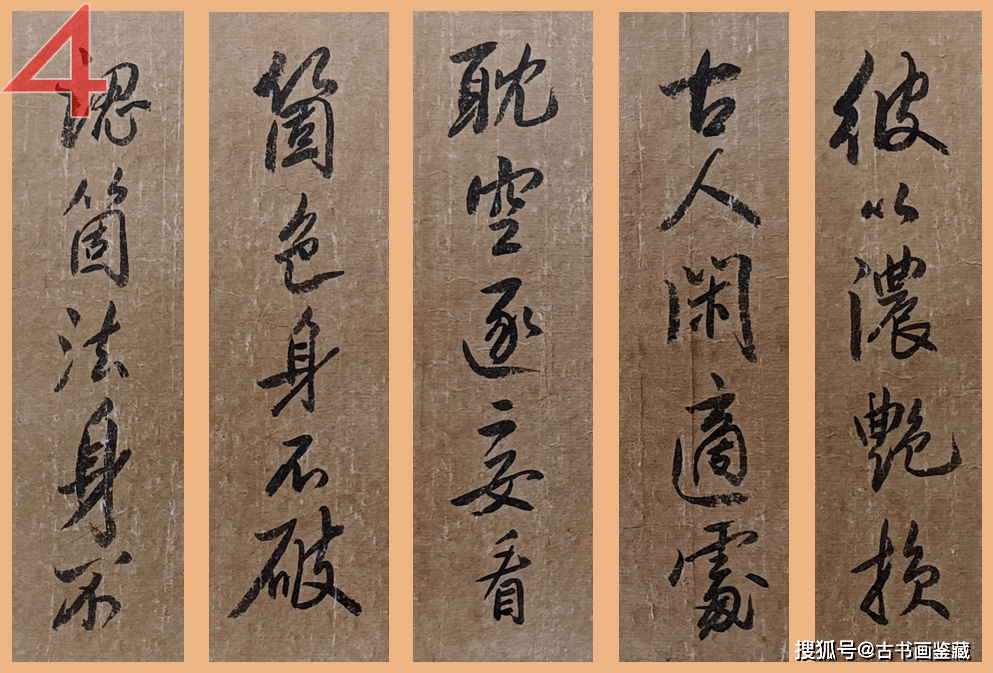 4
彼以濃艷損
古人閑適處
耽空逐妄看
箇色身不破
認箇法身不
搜狐号@古书画鉴藏